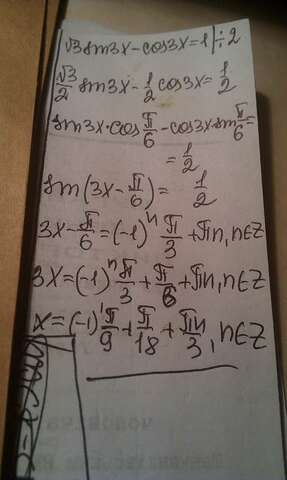 √3 sin3x - cos3x = 1 | ÷ 2
√3/2 sin3x - 1/2 cos3x = 1/2
sin3x · cos π/6 - cos3x · sin π/6 =
= 1/2
sin(3x - π/6) = 1/2
3x - π/6 = (-1)ⁿ π/3 + πn, n∈Z
3x = (-1)ⁿ π/3 + π/6 + πn, n∈Z
x = (-1)ⁿ π/9 + π/18 + πn/3, n∈Z